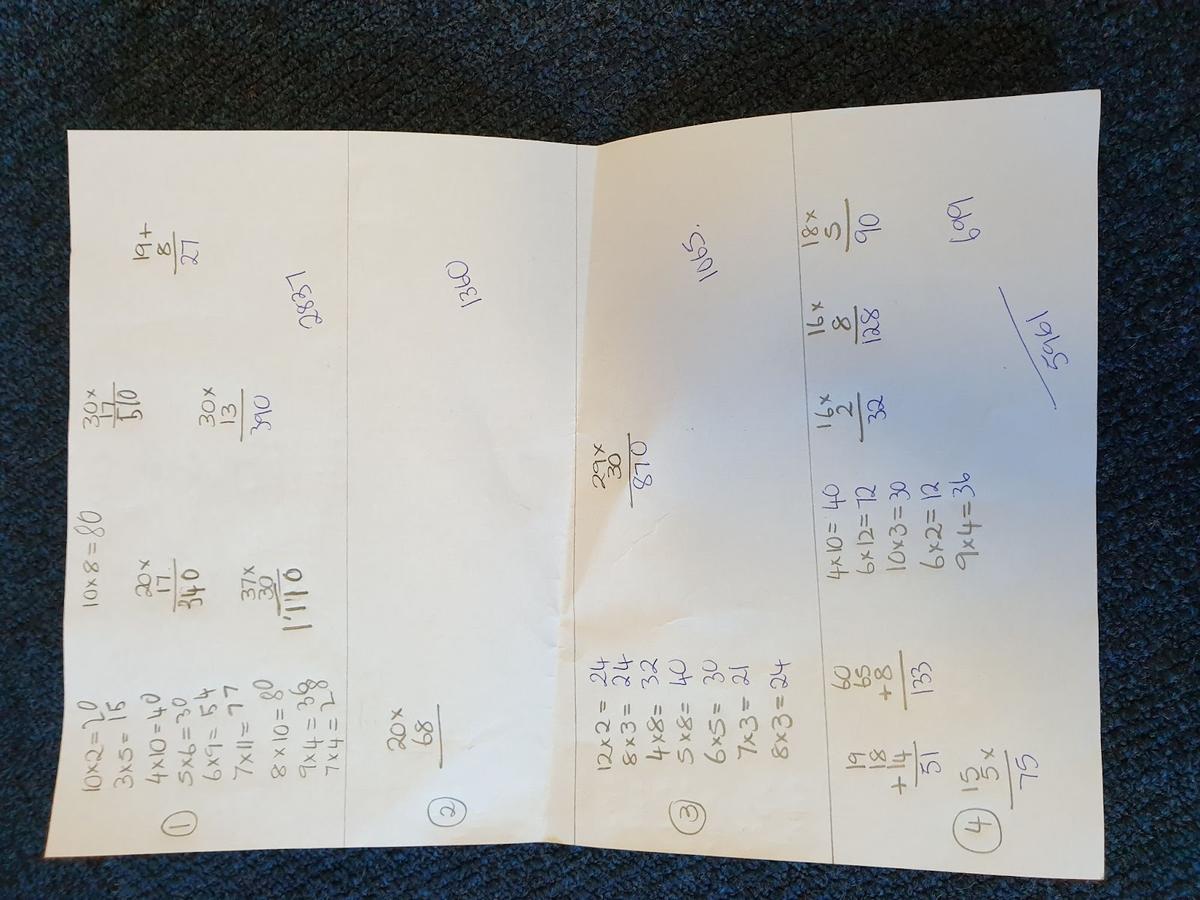 ①
10x2=20
3x5=15
4x10=40
5x6=30
6x9=54
7x11=77
8x10=80
9x4=36
7x4=28
10x8=80
20x
17
340
37x
30
1,110
30x
17
510
30x
13
390
19+
8
27
2837
②
20x
68
1360
③
12x2=24
8x3=24
4x8=32
5x8=40
6x5=30
7x3=21
8x3=24
29x
30
870
1065.
④
19
18
+14
51
15
5x
75
60
65
+8
133
4x10=40
6x12=72
10x3=30
6x2=12
9x4=36
16x
2
32
16x
8
128
18x
5
90
699
5961